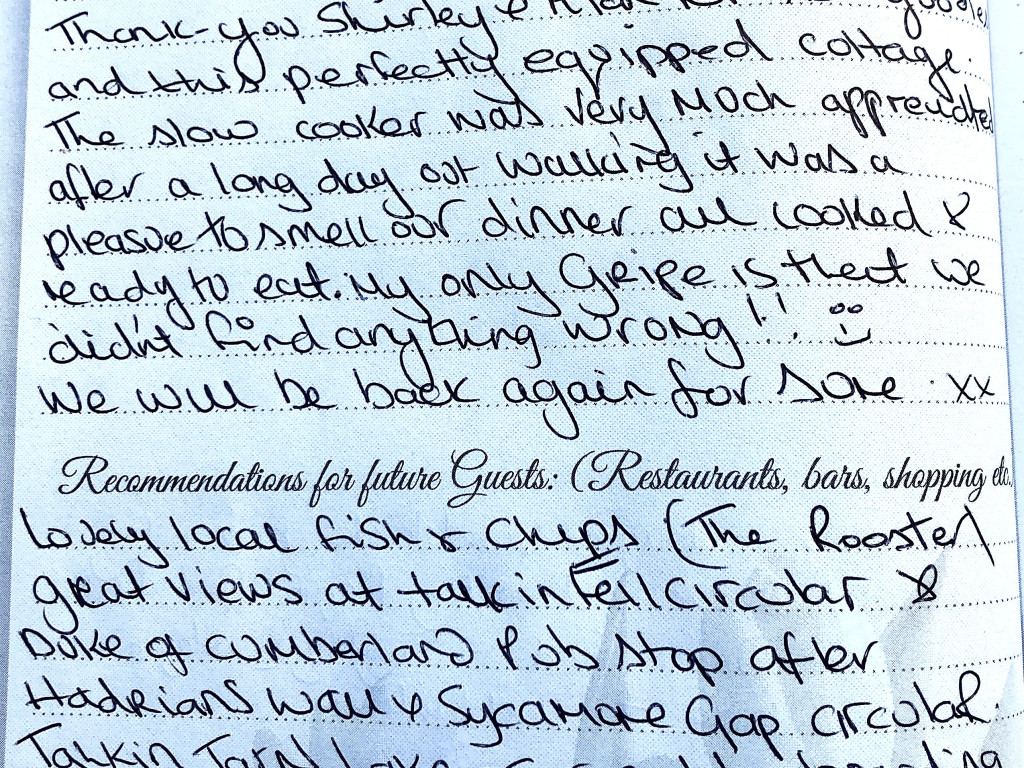 Thank-you Shirley &
and this perfectly equipped cottage.
The slow cooker was very much appreciated
after a long day out walking it was a
pleasure to smell our dinner all cooked &
ready to eat. My only Gripe is that we
didn't find anything wrong!! :)
We will be back again for sure. xx
Recommendations for future Guests: (Restaurants, bars, shopping etc.)
Lovely local fish & chips (The Rooster)
great views at talkin fell circular &
Duke of Cumberland Pub stop after
Hadrians Wall & Sycamore Gap circular.
Talkin Tarn Lake